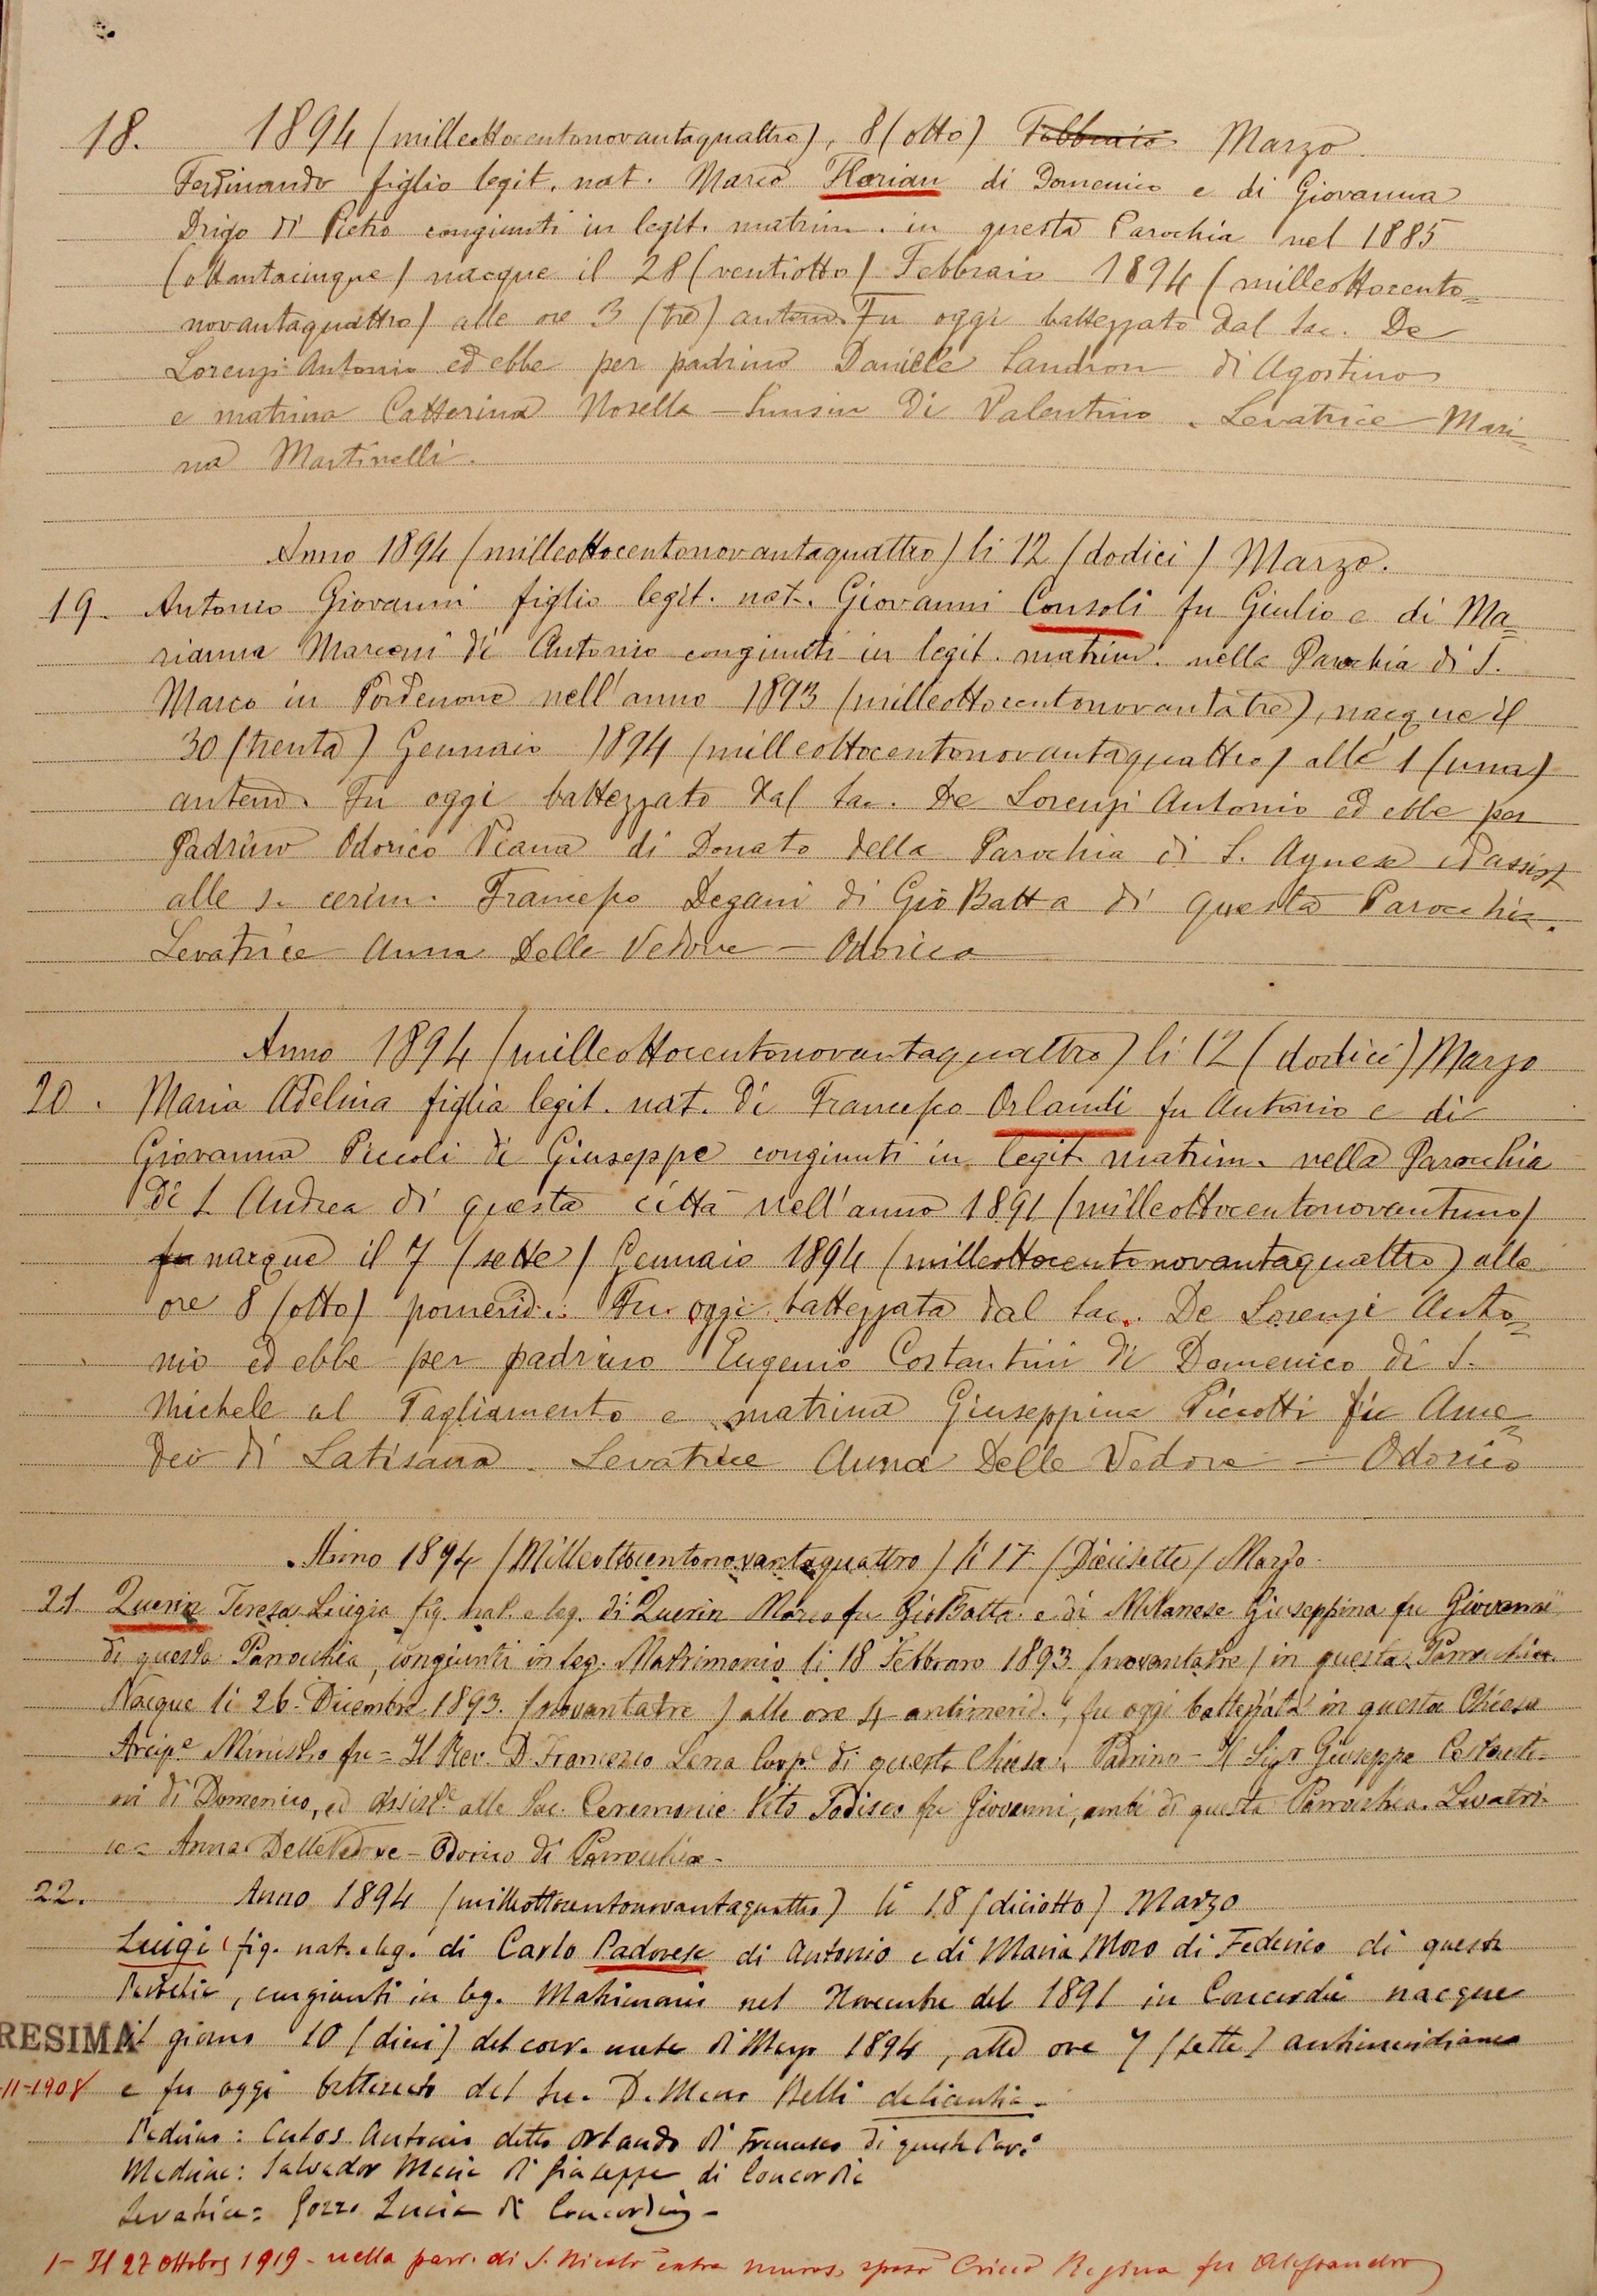 18. 1894 (milleottocentonovantaquattro), 8 (otto) Febbraio Marzo
Ferdinando figlio legit. nat. Marco Florian di Domenico e di Giovanna
Drigo di Pietro congiunti in legit. matrim. in questa Parochia nel 1885
(ottantacinque) nacque il 28 (ventiotto) Febbraio 1894 (milleottocento=
novantaquattro) alle ore 3 (tre) antemd. Fu oggi battezzato dal sac. De
Lorenzi Antonio ed ebbe per padrino Daniele Sandron di Agostino
e matrina Catterina Nosella - Sunsin di Valentino. Levatrice Mari=
na Martinelli.
Anno 1894 (milleottocentonovantaquattro) li 12 (dodici) Marzo.
19. Antonio Giovanni figlio legit. nat. Giovanni Consoli fu Giulio e di Ma=
rianna Marconi di Antonio congiunti in legit. matrim. nella Parochia di S.
Marco in Pordenone nell'anno 1893 (milleottocentonovantatre), nacque il
30 (trenta) Gennaio 1894 (milleottocentonovantaquattro) alle 1 (una)
antemd. Fu oggi battezzato dal sac. De Lorenzi Antonio ed ebbe per
Padrino Odorico Viana di Donato della Parochia di S. Agnese ed assist
alle s. cerim. Francesco Degani di Gio Batta di questa Parocchia.
Levatrice Anna Delle Vedove - Odorico
Anno 1894 (milleottocentonovantaquattro) li 12 (dodici) Marzo
20. Maria Adelina figlia legit. nat. di Francesco Orlandi fu Antonio e di
Giovanna Piccoli di Giuseppe congiunti in legit. matrim. nella Parocchia
di S Andrea di questa città nell'anno 1891 (milleottocentonovantuno)
fu nacque il 7 (sette) Gennaio 1894 (milleottocentonovantaquattro) alle
ore 8 (otto) pomerid. Fu oggi battezzata dal sac. De Lorenzi Anto=
nio ed ebbe per padrino Eugenio Costantini di Domenico di S.
Michele al Tagliamento e matrina Giuseppina Piccotti fu Ame=
deo di Latisana. Levatrice Anna Delle Vedove - Odorico
Anno 1894 (Milleottocentonovantaquattro) li 17 (Diecisette) Marzo.
21. Querin Teresa Luigia fig. nat. e leg. di Querin Marco fu GioBatta e di Milanese Giuseppina fu Giovanni
di questa Parrochia, congiunti in leg. Matrimonio li 18 Febbraro 1893 (novantatre) in questa Parrochia.
Nacque li 26 Dicembre 1893. (novantatre) alle ore 4 antimerid., fu oggi battezzata in questa Chiesa
Arcip.e Ministro fu = Il Rev. D. Francesco Lena Coop.e di questa Chiesa. Padrino - Il Sig.r Giuseppe Costanti-
ni di Domenico, ed assist.e alle Sac. Ceremonie Vito Todisco fu Giovanni, ambi di questa Parrochia. Levatri-
ce = Anna Delle Vedove - Odorico di Parrochia -
22. Anno 1894 (milleottocentonovantaquattro) li 18 (diciotto) Marzo
Luigi fig. nat. e leg. di Carlo Padovese di Antonio e di Maria Moro di Federico di questa
Parochia, congiunti in leg. Matrimonio nel Novembre del 1891 in Concordia nacque
RESIMA il giorno 10 (dieci) del corr. mese di Marzo 1894, alle ore 7 (sette) antimeridiane
11-1908 e fu oggi battezzato dal Sac. D. Marco Belli de licentia.
Padrino: Antonio detto Orlando di Francesco di questa Par.a
Madrina: Salvador Maria di Giuseppe di Concordia
Levatrice: Gozzo Lucia di Concordia -
1- Il 27 Ottobre 1919 - nella parr. di S. Nicolò extra muros, sposò Cricco Regina fu Alessandro